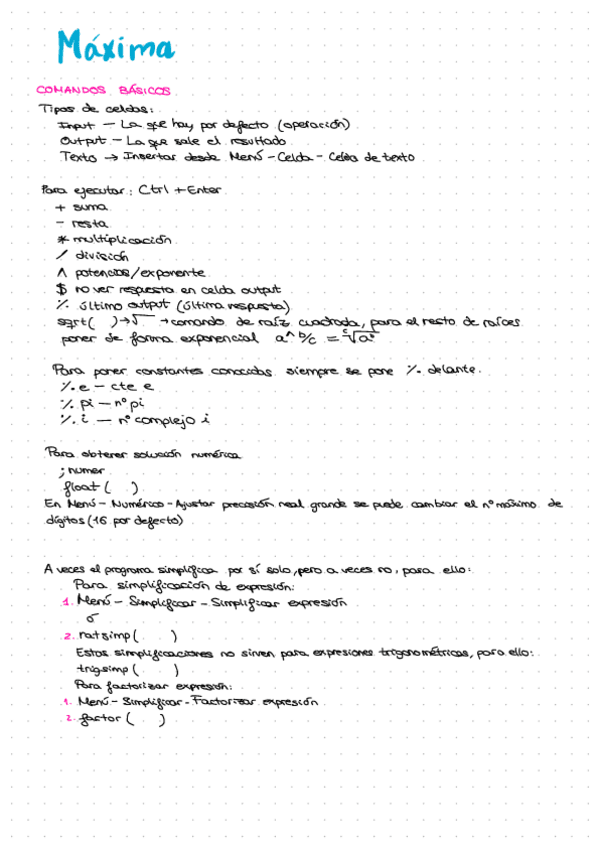 Máxima
COMANDOS BÁSICOS
Tipos de celdas:
Input — La que hay por defecto (operación)
Output — La que sale el resultado
Texto → Insertar desde Menú - Celda - Celda de texto
Para ejecutar: Ctrl + Enter
+ suma
- resta
* multiplicación
/ división
^ potencias/exponente
$ no ver respuesta en celda output
% último output (última respuesta)
sqrt( ) → √ → comando de raíz cuadrada, para el resto de raíces
poner de forma exponencial a^b/c = ᶜ√aᵇ
Para poner constantes conocidas siempre se pone % delante.
% e — cte e
% pi — nº pi
% i — nº complejo i
Para obtener solución numérica
; numer
float ( )
En Menú - Numérico - Ajustar precisión real grande se puede cambiar el nº máximo de
dígitos (16 por defecto)
A veces el programa simplifica por sí solo, pero a veces no, para ello:
Para simplificación de expresión:
1. Menú - Simplificar - Simplificar expresión
ó
2. ratsimp ( )
Estas simplificaciones no sirven para expresiones trigonométricas, para ello:
trigsimp ( )
Para factorizar expresión:
1. Menú - Simplificar - Factorizar expresión
2. factor ( )